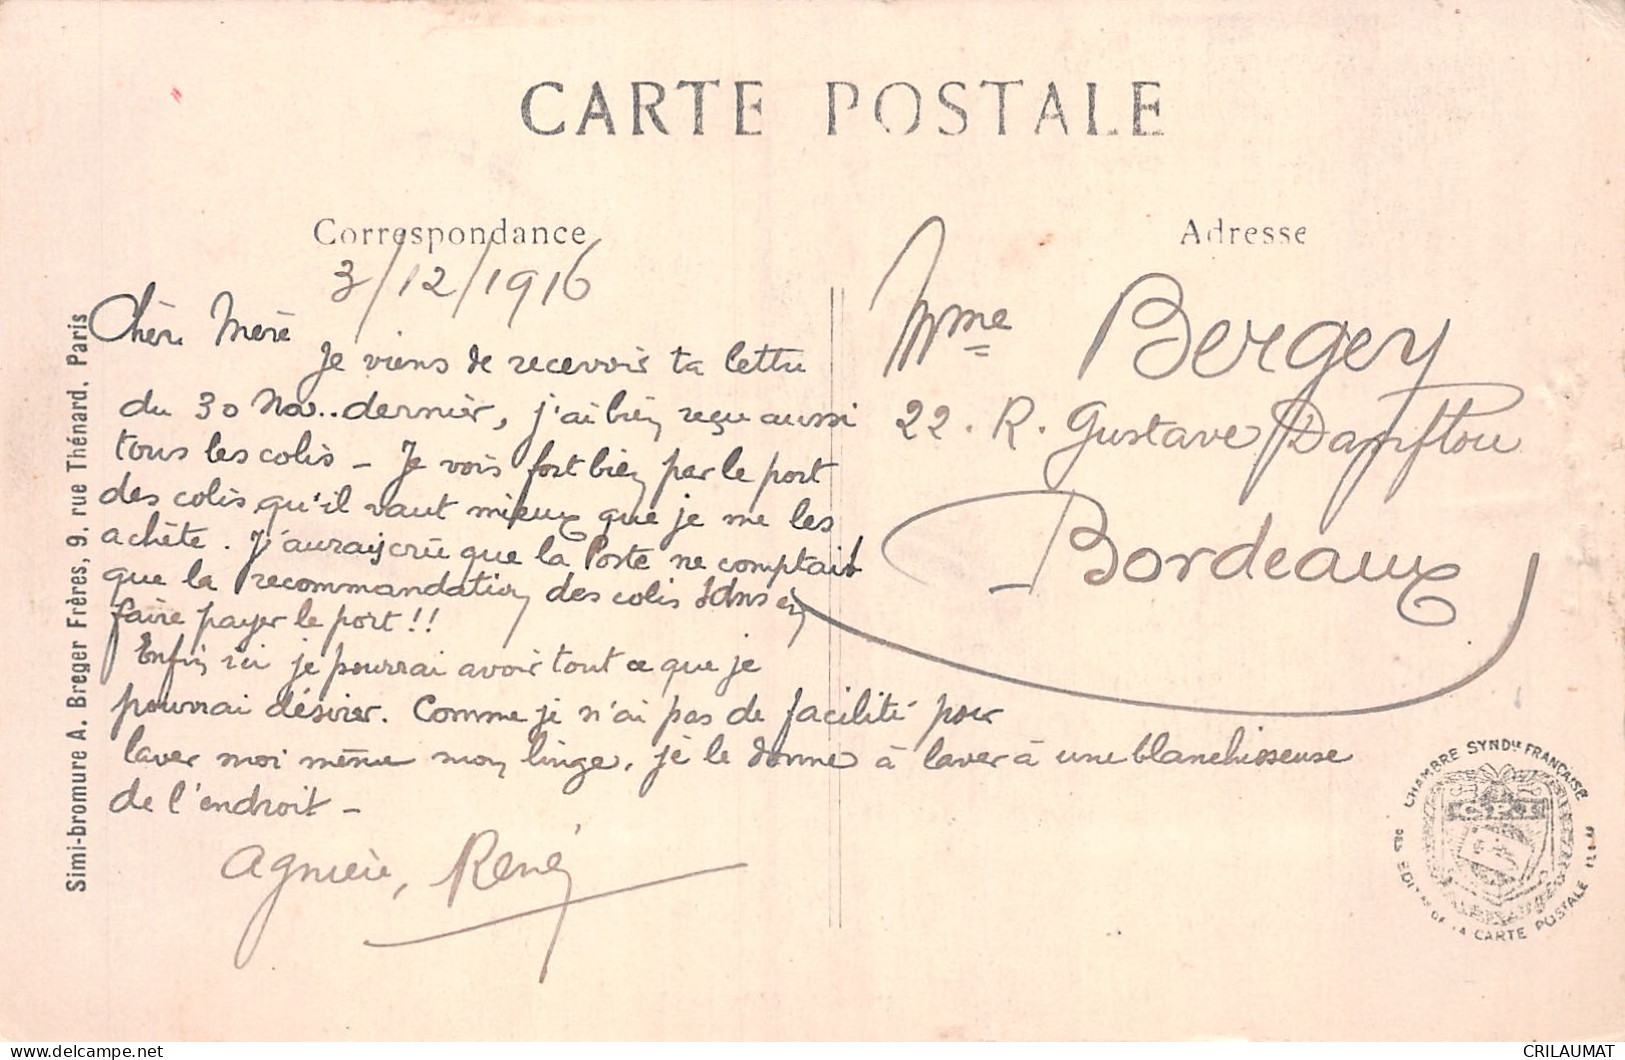 CARTE POSTALE
Correspondance
Adresse
3/12/1916
Chère Mère
Je viens de recevoir ta lettre
du 30 Nov.. dernier, j'ai bien reçu aussi
tous les colis - Je vois fort bien par le port
des colis qu'il vaut mieux que je me les
achète. J'aurais crû que la Poste ne comptait
que la recommandation des colis sans en
faire payer le port!!
Enfin ici je pourrai avoir tout ce que je
pourrai désirer. Comme je n'ai pas de facilité pour
laver moi même mon linge, je le donne à laver à une blanchisseuse
de l'endroit -
René
Mme Bergey
22. R. Gustave
Bordeaux
Simi-bromure A. Breger Frères, 9, rue Thénard, Paris
CHAMBRE SYNDLE FRANÇAISE
DE LA CARTE POSTALE
CRILAUMAT